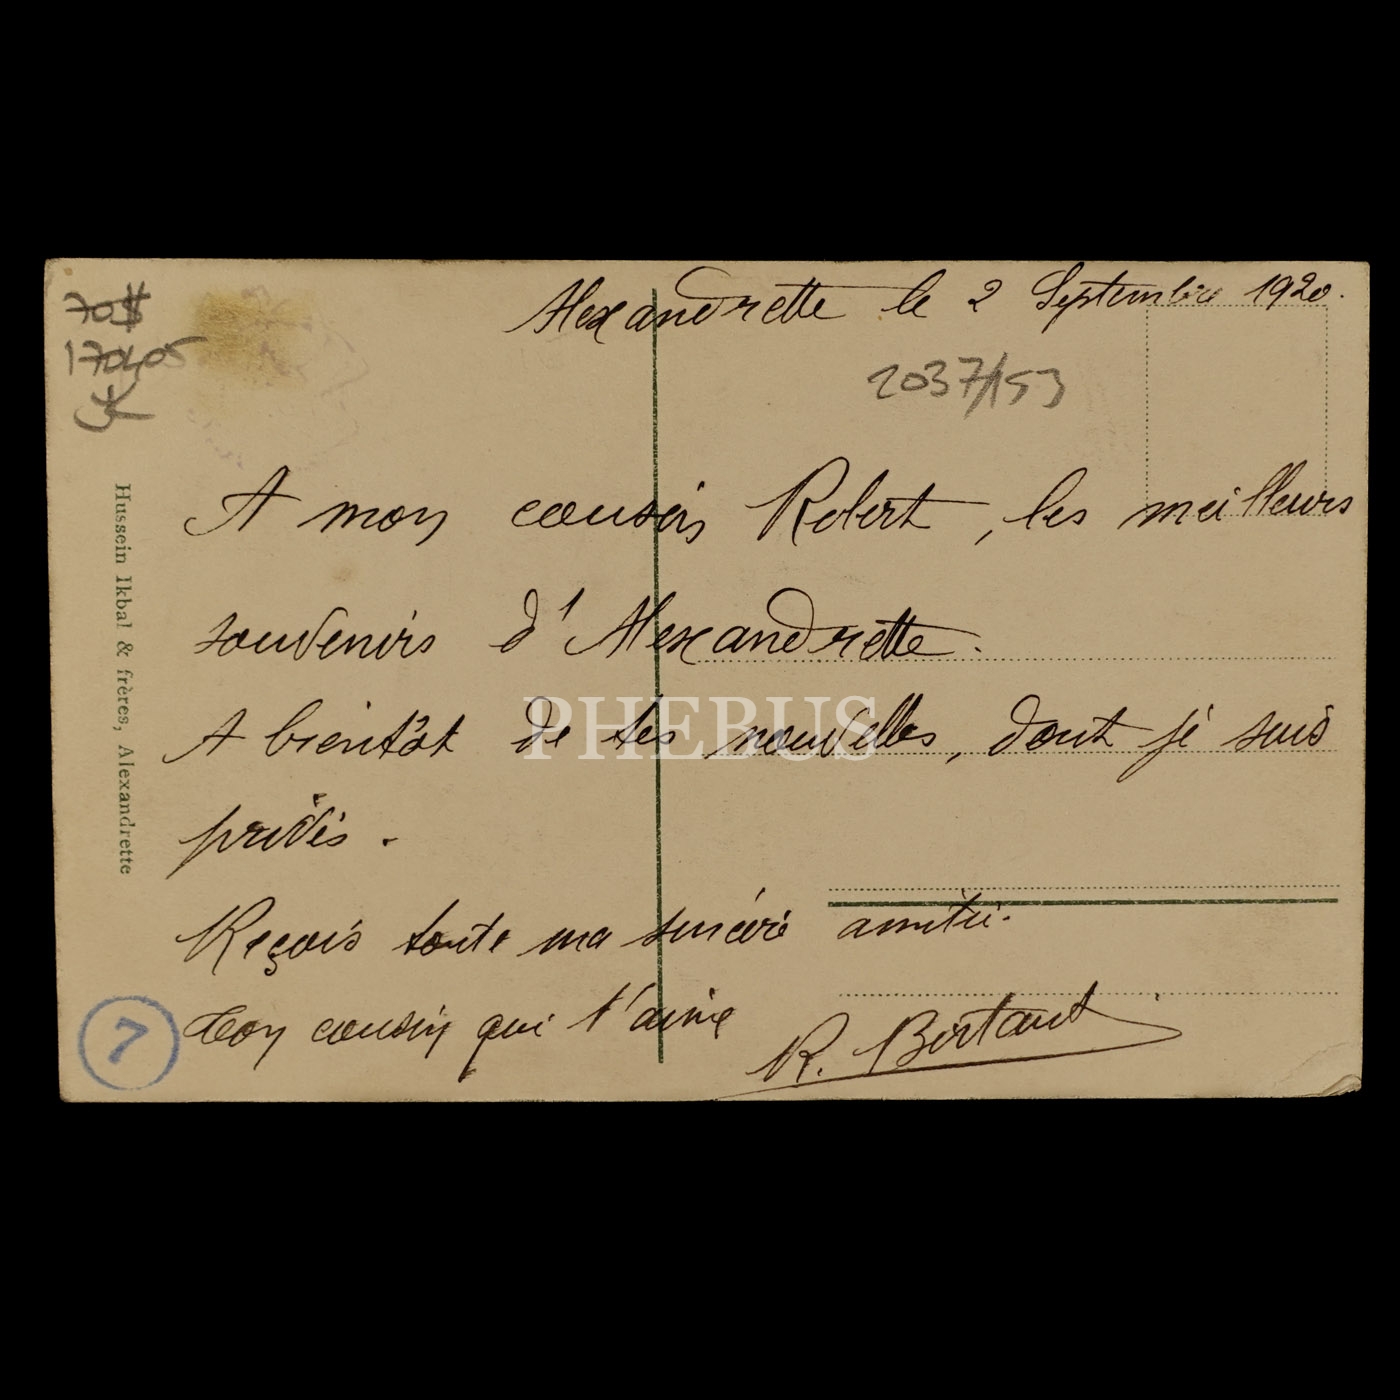 Alexandrette le 2 Septembre 1920.
70$
170405
2037/153
A mon cousin Robert, les meilleurs
souvenirs d'Alexandrette.
A bientôt de tes nouvelles, dont je suis
privés.
Reçois toute ma sincère amitié.
Ton cousin qui t'aime
R. Bertaut
Hussein Ikbal & frères, Alexandrette
7
PHEBUS